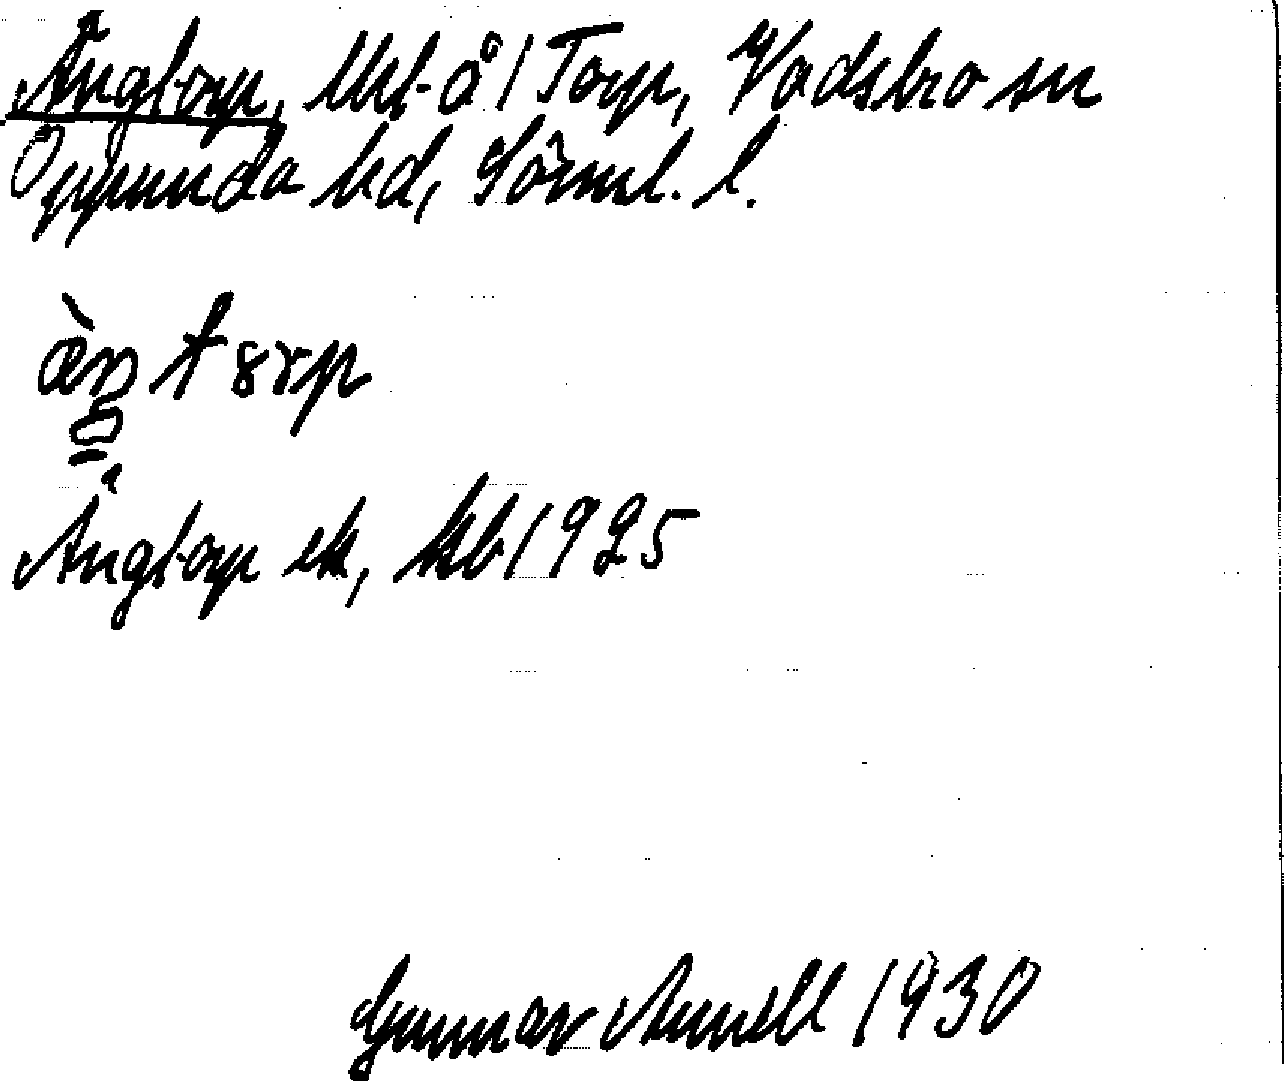 Ängtorp, lht å 1 Torp, Vadsbro sn
Oppunda hd, Sörml. l.
æ̀ŋ tɤrp
Ängtorp ek, kb 1925
Gunnar Arnell 1930